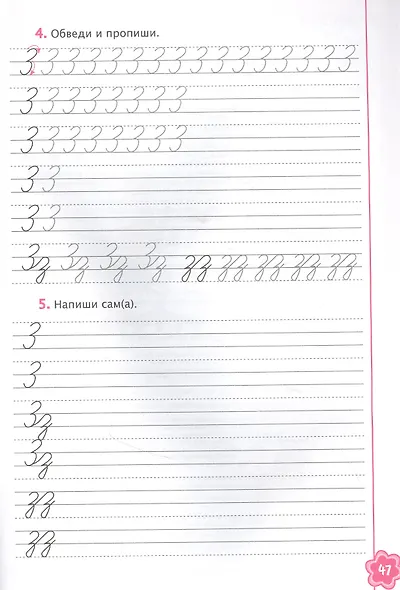 4. Обведи и пропиши.
З З З З З З З З З З З З З З З З
З З З З З З З З
З З З З З З З З
З З
З З
Зз Зз Зз Зз зз зз зз зз зз
5. Напиши сам(а).
З
З
Зз
Зз
зз
зз
47